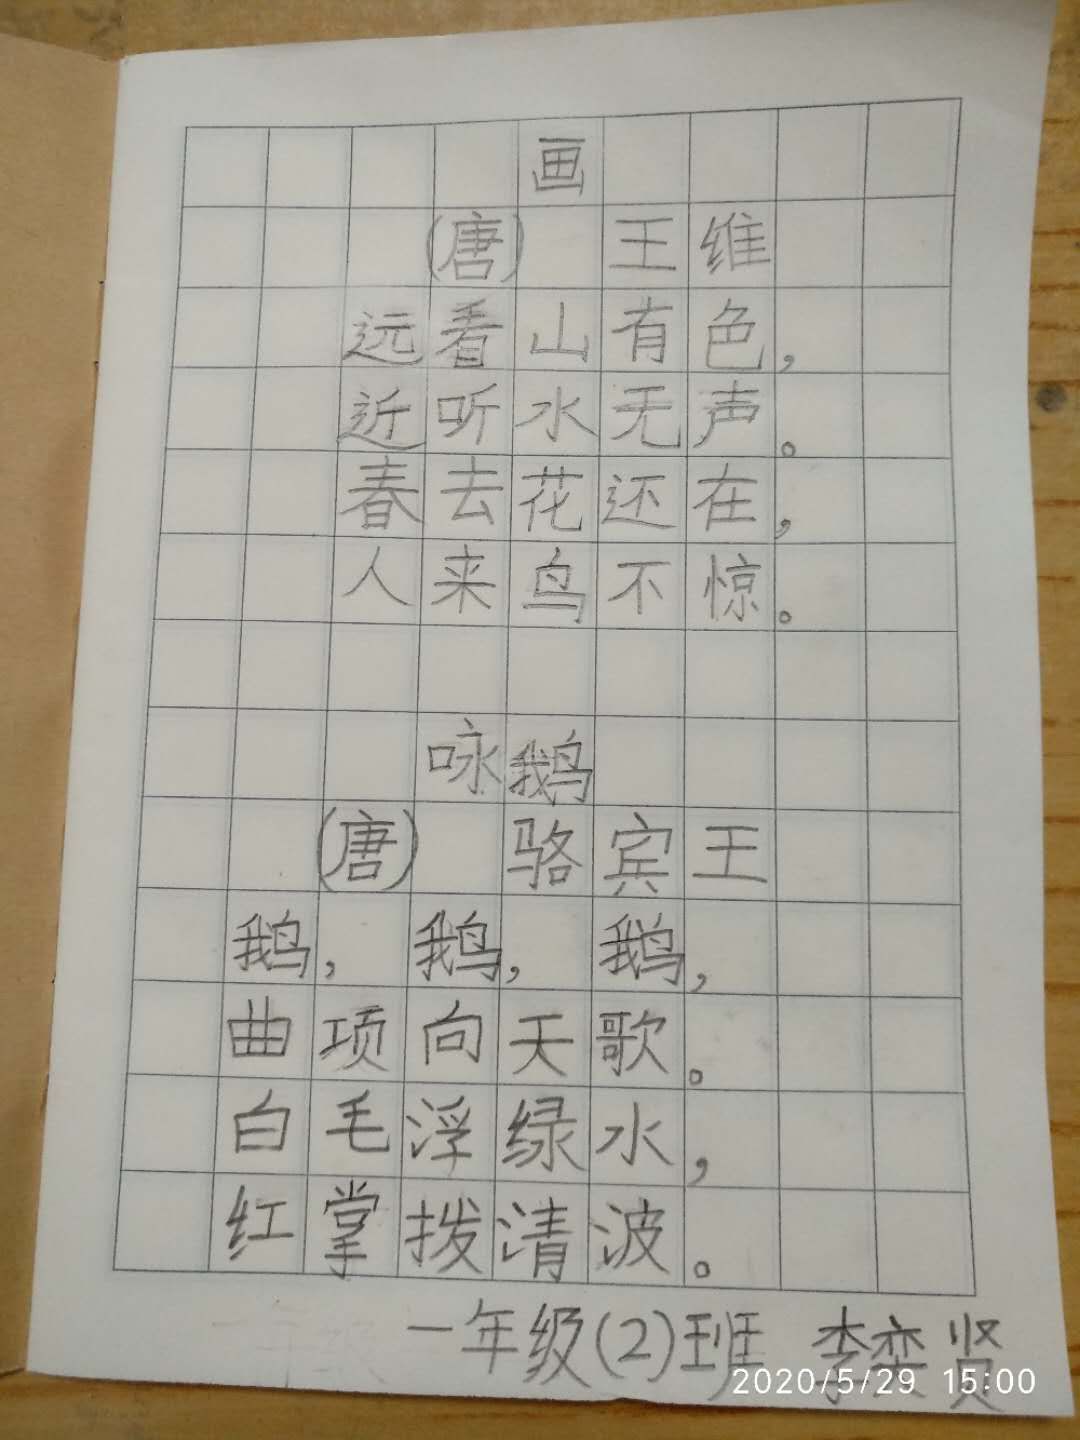 画
(唐) 王维
远看山有色,
近听水无声。
春去花还在,
人来鸟不惊。
咏鹅
(唐) 骆宾王
鹅,鹅,鹅,
曲项向天歌。
白毛浮绿水,
红掌拨清波。
一年级(2)班 李奕贤
2020/5/29 15:00